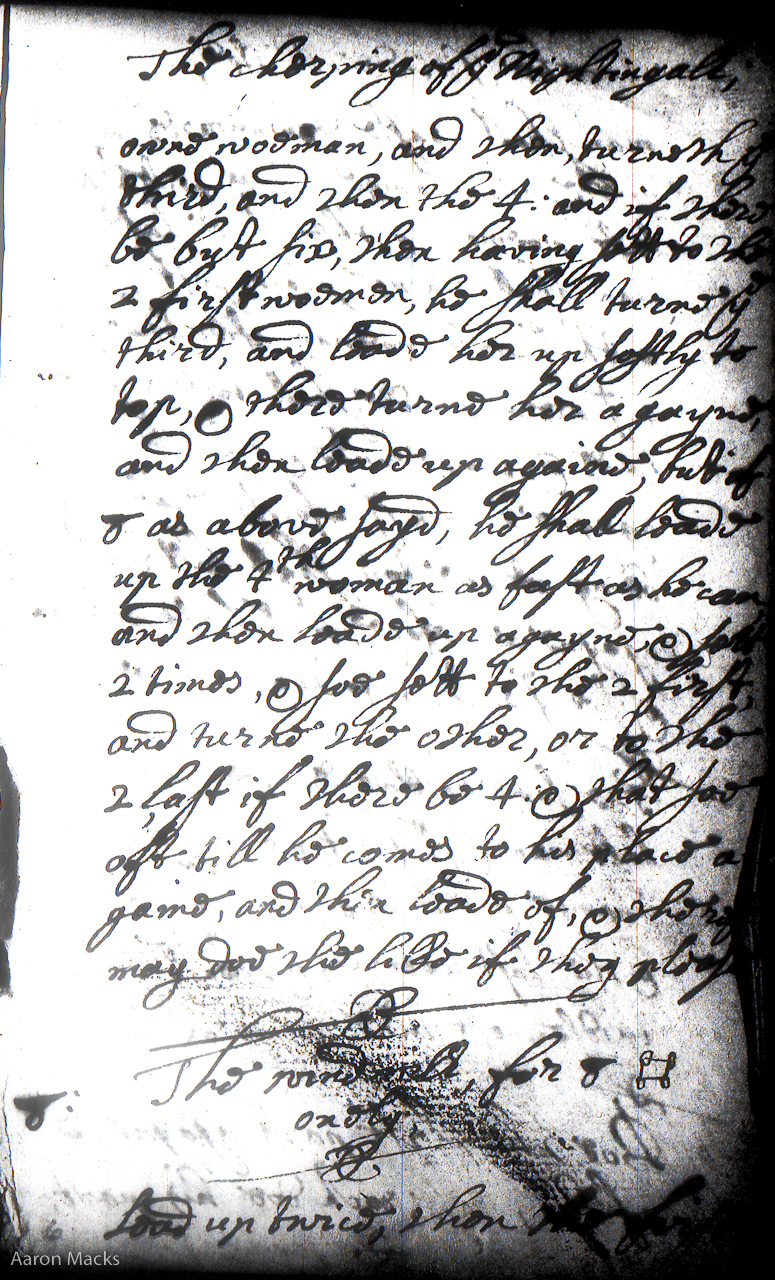 The cherping of ye Nightingall,
owne woeman, and then, turne th ye
third, and then the 4: and if there
be but six, then having sett to the
2 first woemen, he shall turne ye
third, and leade her up softly to
top, & there turne her agayne,
and then leade up againe, but if
8 as above sayd, he shall leade
up the 4th woman as fast as he can
and then leade up agayne, & sett
2 times, & soe sett to the 2 first,
and turne the other, or to the
2 last if there be 4: & that soe
oft till he comes to his place a
gaine, and then leade of, & the
may doe the like if they pleas
The for 8
8:
onely,
6 Lead up twice, then the
Aaron Macks